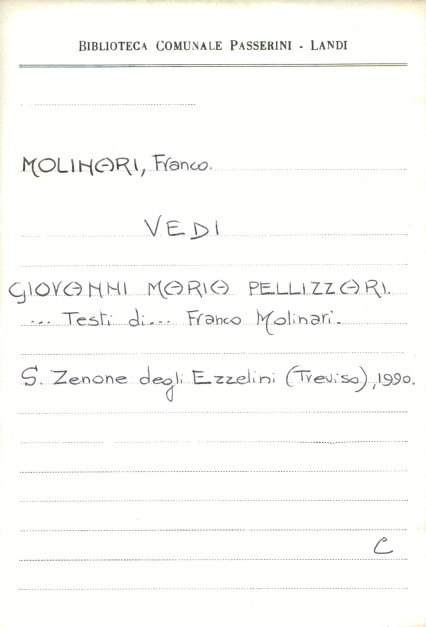 BIBLIOTECA COMUNALE PASSERINI - LANDI
MOLINARI, Franco.
VEDI
GIOVANNI MARIA PELLIZZARI.
... Testi di... Franco Molinari.
S. Zenone degli Ezzelini (Treviso), 1990.
C